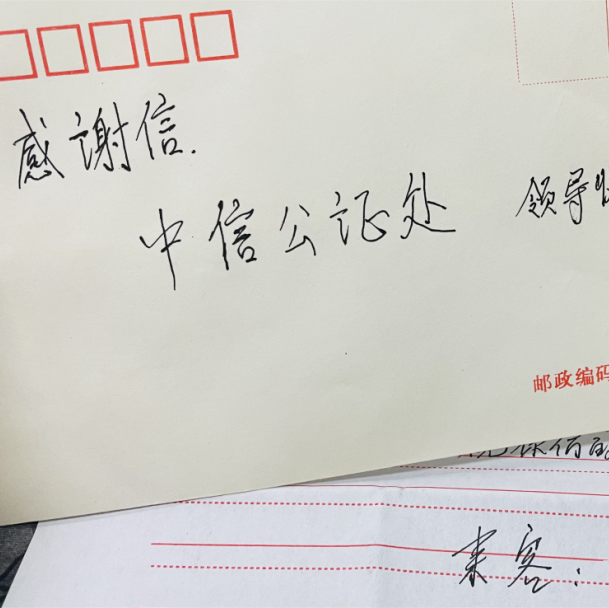 感谢信.
中信公证处 领导
邮政编码
来客: